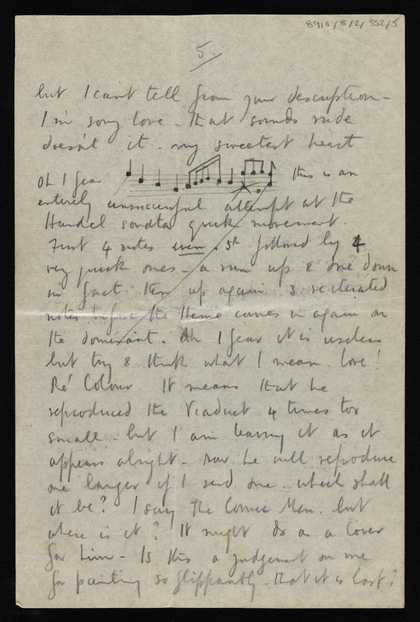 8910/8/2/352/5
5.
but I can't tell from your description -
I'm sorry love - that sounds rude
doesn't it - my sweetest heart
Oh I fear this is an
entirely unsuccessful attempt at the
Handel sonata quick movement.
First 4 notes even - 5th followed by 4
very quick ones - a run up & one down
in fact then up again 3 reiterated
notes before the theme comes in again on
the dominant. Oh I fear it is useless
but try & think what I mean. love!
Ré Colour It means that he
reproduced the Viaduct 4 times too
small - but I am leaving it as it
appears alright - now he will reproduce
one larger if I send one - which shall
it be? I say The Comic Man. but
where is it? It might do as a cover
for him - Is this a judgement on me
for painting so flippantly - that it is lost?